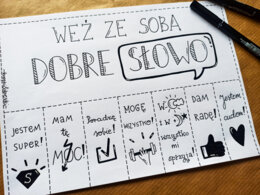 WEŹ ZE SOBĄ
DOBRE SŁOWO
JESTEM
SUPER!
S
Mam
tę
MOC!
Poradzę
sobie!
MOGĘ
WSZYSTKO!
W
i w
wszystko
mi
sprzyja!
DAM
RADĘ!
Jestem
cudem!